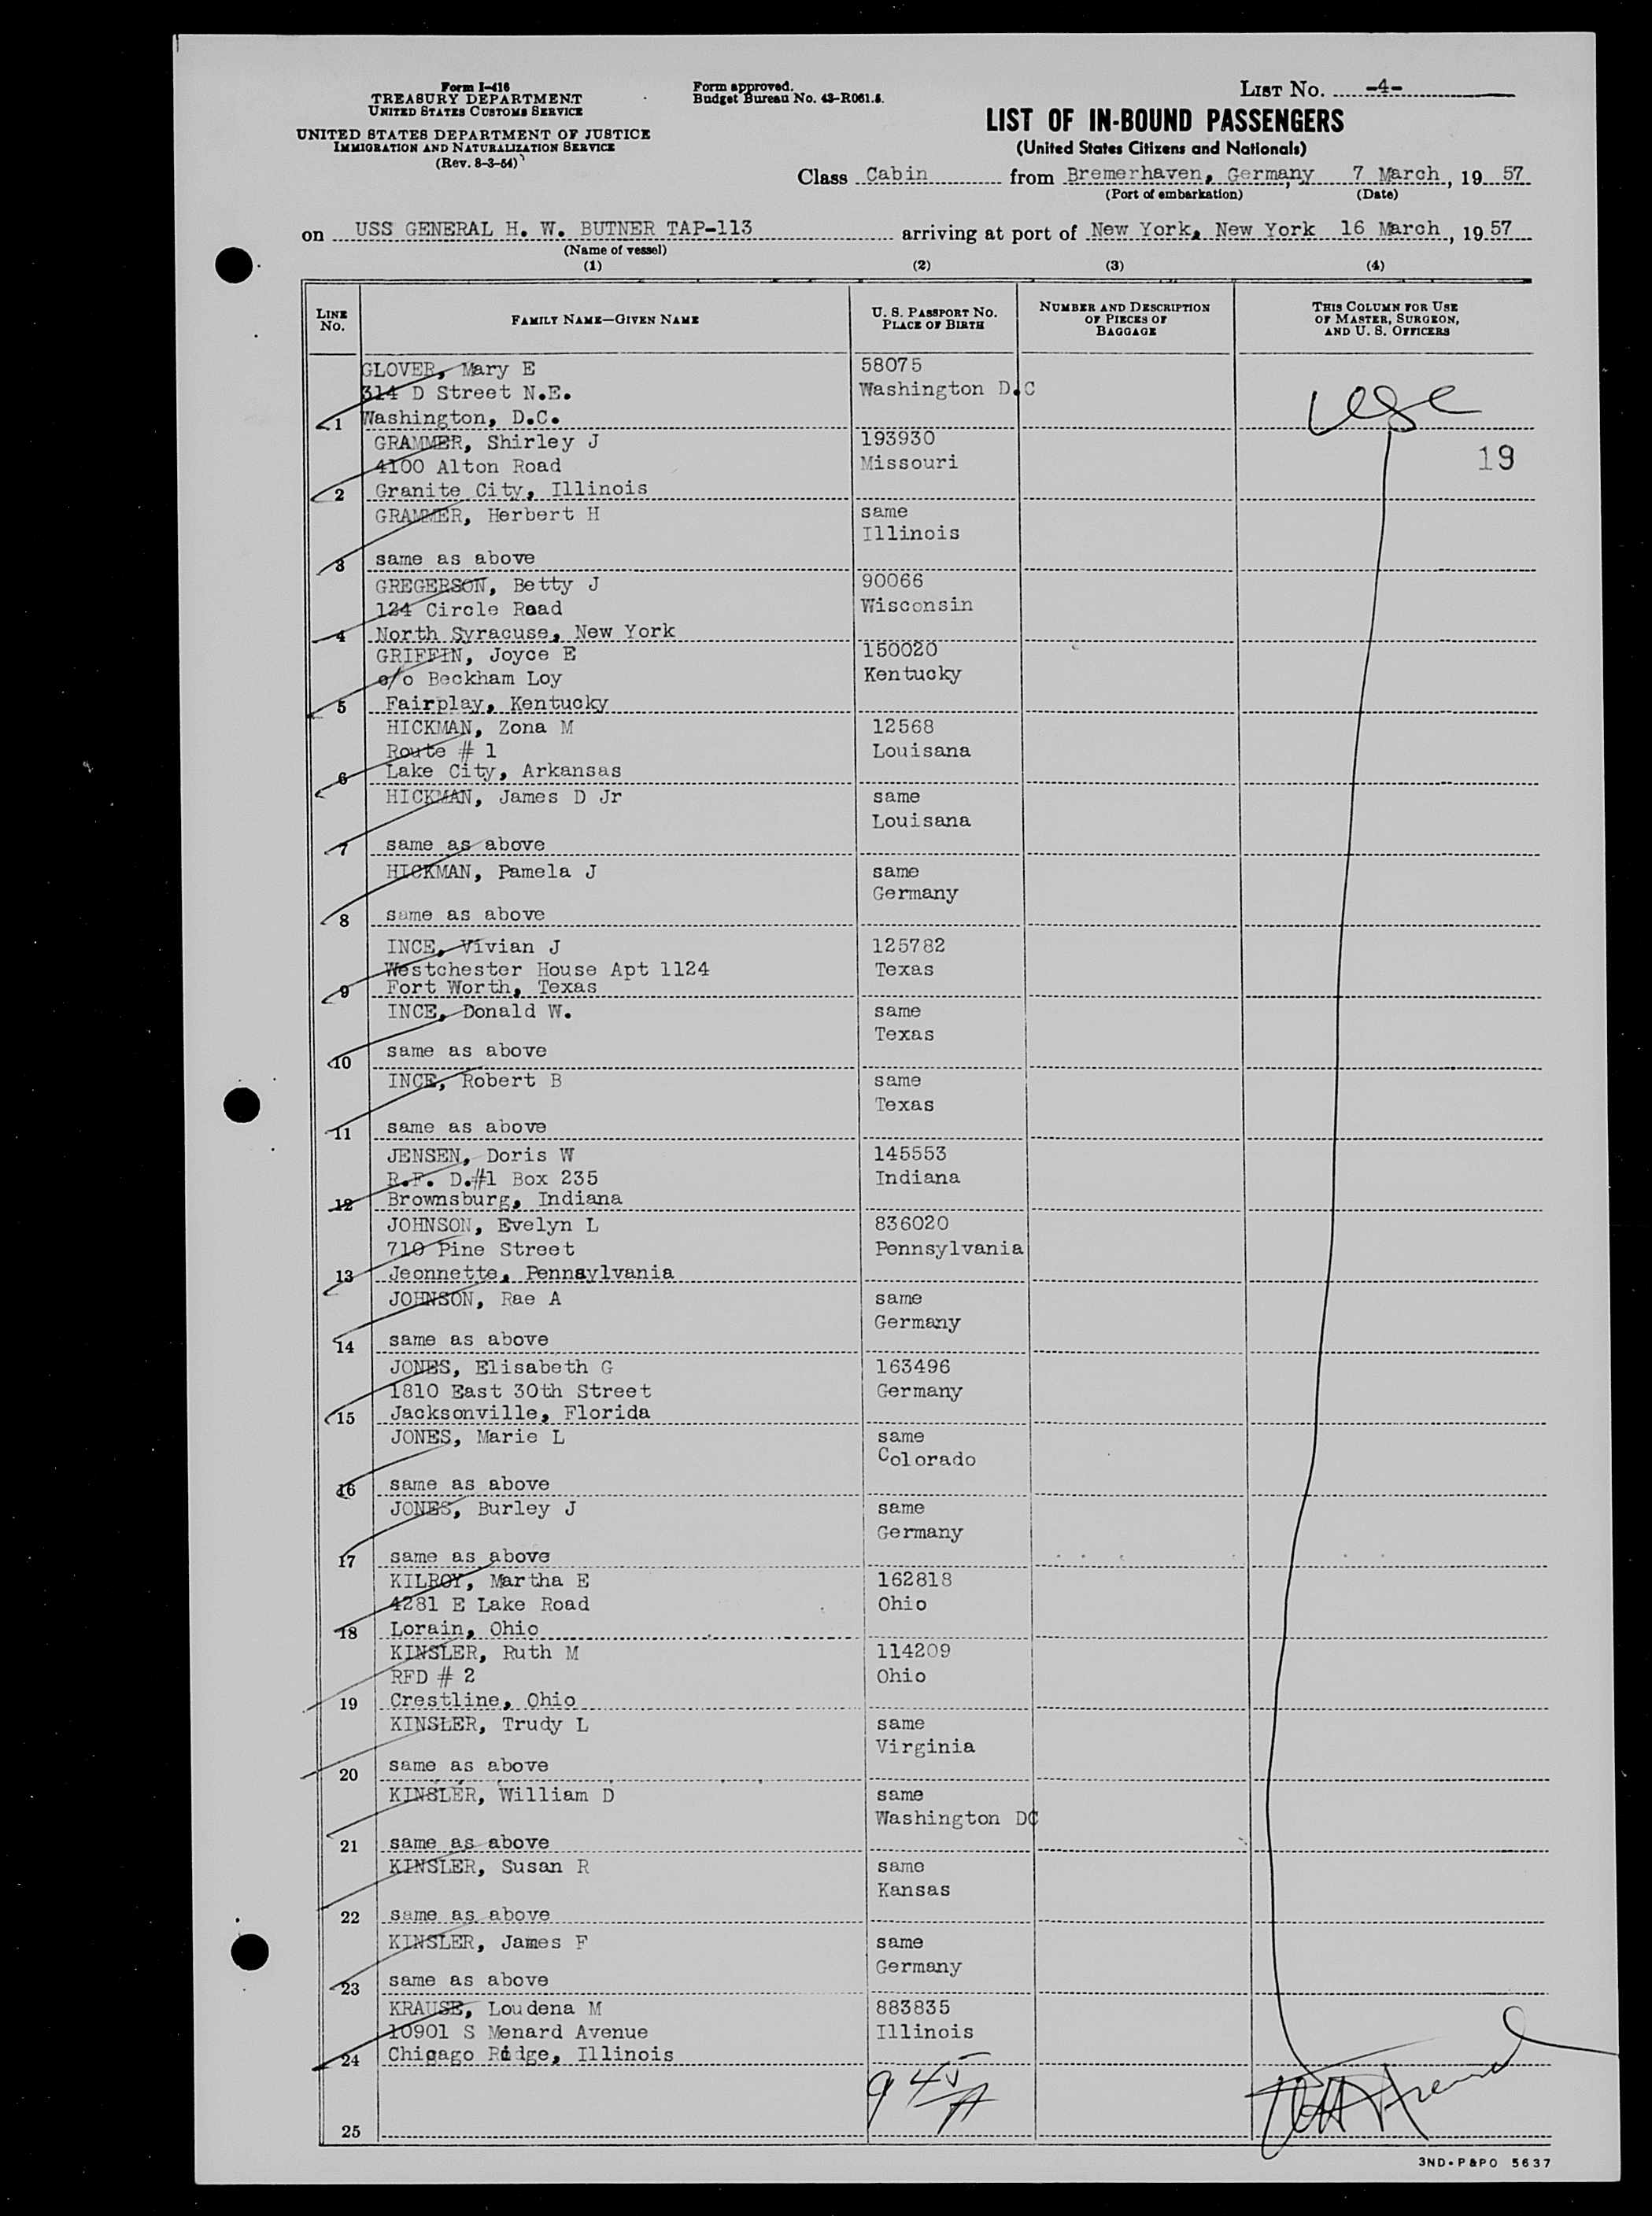 Form I-416
TREASURY DEPARTMENT
UNITED STATES CUSTOMS SERVICE
UNITED STATES DEPARTMENT OF JUSTICE
IMMIGRATION AND NATURALIZATION SERVICE
(Rev. 8-3-54)
Form approved.
Budget Bureau No. 43-R061.5.
LIST No. -4-
LIST OF IN-BOUND PASSENGERS
(United States Citizens and Nationals)
Class Cabin from Bremerhaven, Germany, 7 March, 19 57
(Port of embarkation) (Date)
on USS GENERAL H. W. BUTNER TAP-113 arriving at port of New York, New York 16 March, 19 57
(Name of vessel)
(1) (2) (3) (4)
LINE No. FAMILY NAME—GIVEN NAME U. S. PASSPORT No. PLACE OF BIRTH NUMBER AND DESCRIPTION OF PIECES OF BAGGAGE THIS COLUMN FOR USE OF MASTER, SURGEON, AND U. S. OFFICERS
GLOVER, Mary E 58075
314 D Street N.E. Washington D.C
1 Washington, D.C.
GRAMMER, Shirley J 193930
4100 Alton Road Missouri 19
2 Granite City, Illinois
GRAMMER, Herbert H same
Illinois
3 same as above
GREGERSON, Betty J 90066
124 Circle Road Wisconsin
4 North Syracuse, New York
GRIFFIN, Joyce E 150020
c/o Beckham Loy Kentucky
5 Fairplay, Kentucky
HICKMAN, Zona M 12568
Route # 1 Louisana
6 Lake City, Arkansas
HICKMAN, James D Jr same
Louisana
7 same as above
HICKMAN, Pamela J same
Germany
8 same as above
INCE, Vivian J 125782
Westchester House Apt 1124 Texas
9 Fort Worth, Texas
INCE, Donald W. same
Texas
10 same as above
INCE, Robert B same
Texas
11 same as above
JENSEN, Doris W 145553
R.F. D.#1 Box 235 Indiana
12 Brownsburg, Indiana
JOHNSON, Evelyn L 836020
710 Pine Street Pennsylvania
13 Jeonnette, Pennsylvania
JOHNSON, Rae A same
Germany
14 same as above
JONES, Elisabeth G 163496
1810 East 30th Street Germany
15 Jacksonville, Florida
JONES, Marie L same
Colorado
16 same as above
JONES, Burley J same
Germany
17 same as above
KILROY, Martha E 162818
4281 E Lake Road Ohio
18 Lorain, Ohio
KINSLER, Ruth M 114209
RFD # 2 Ohio
19 Crestline, Ohio
KINSLER, Trudy L same
Virginia
20 same as above
KINSLER, William D same
Washington DC
21 same as above
KINSLER, Susan R same
Kansas
22 same as above
KINSLER, James F same
Germany
23 same as above
KRAUSE, Loudena M 883835
10901 S Menard Avenue Illinois
24 Chicago Ridge, Illinois
25
3ND-P&PO 5637